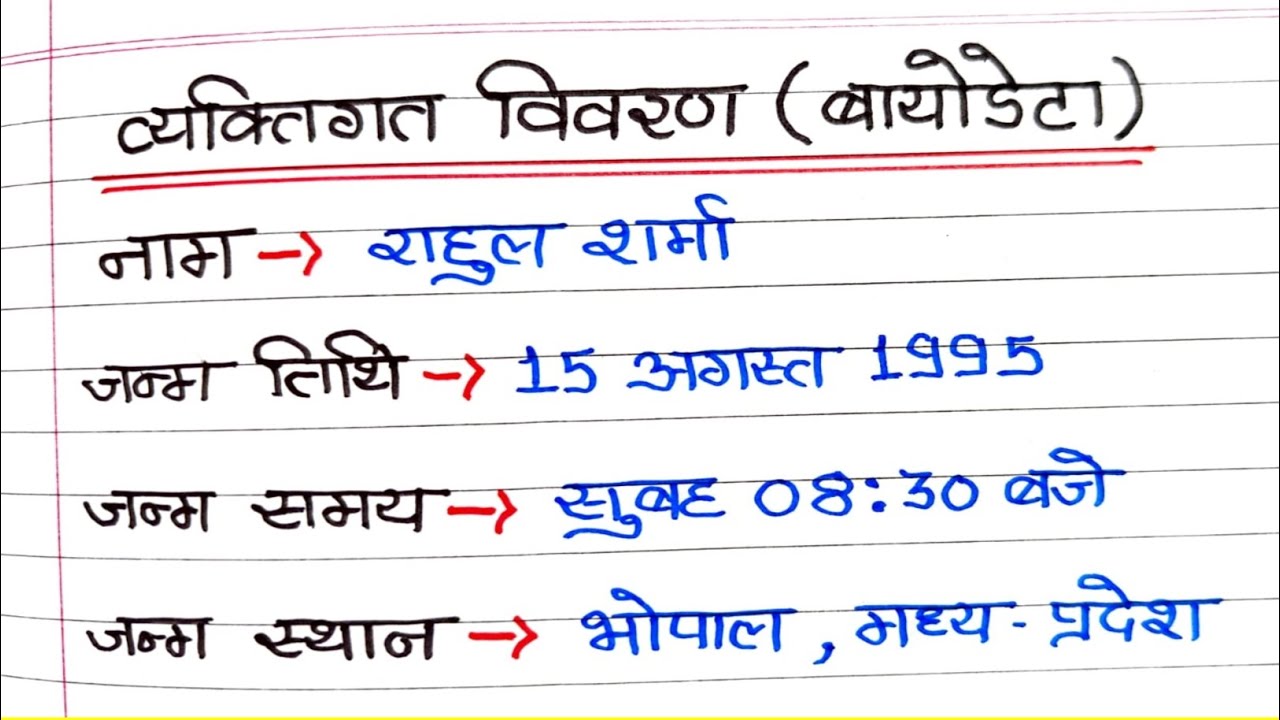 व्यक्तिगत विवरण (बायोडेटा)
नाम → राहुल शर्मा
जन्म तिथि → 15 अगस्त 1995
जन्म समय → सुबह 08:30 बजे
जन्म स्थान → भोपाल, मध्य-प्रदेश